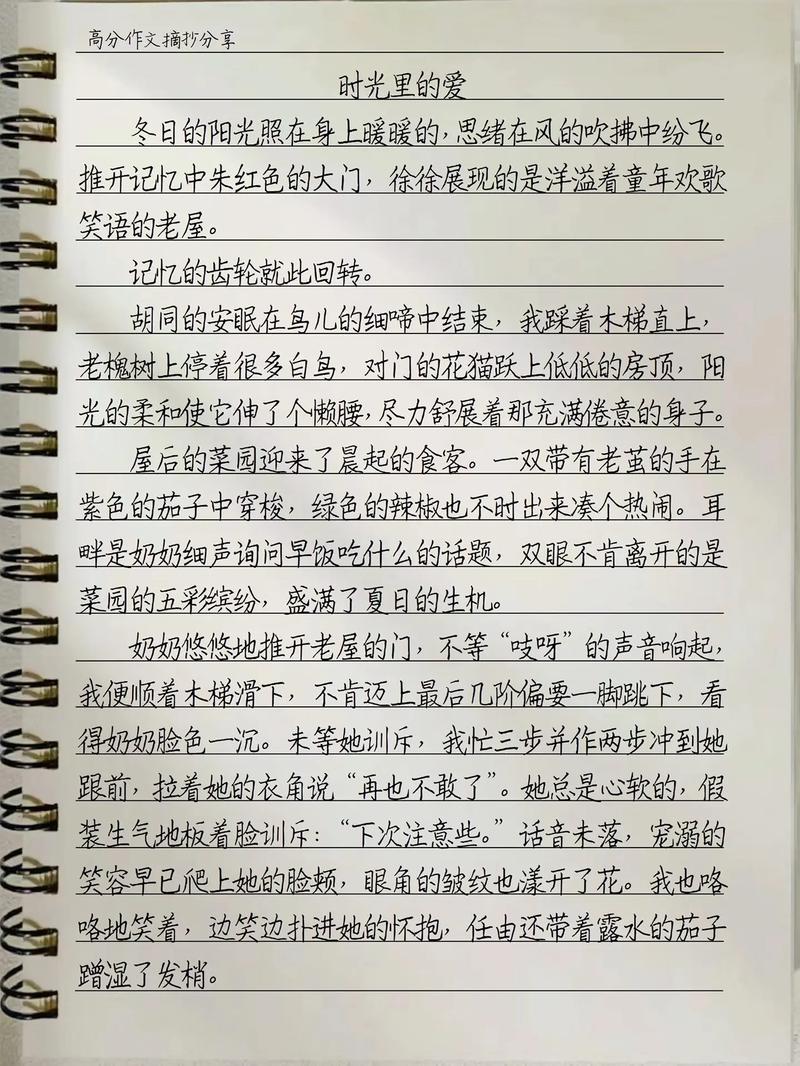 高分作文摘抄分享
时光里的爱
冬日的阳光照在身上暖暖的，思绪在风的吹拂中纷飞。
推开记忆中朱红色的大门，徐徐展现的是洋溢着童年欢歌
笑语的老屋。
记忆的齿轮就此回转。
胡同的安眠在鸟儿的细啼中结束，我踩着木梯直上，
老槐树上停着很多白鸟，对门的花猫跃上低低的房顶，阳
光的柔和使它伸了个懒腰，尽力舒展着那充满倦意的身子。
屋后的菜园迎来了晨起的食客。一双带有老茧的手在
紫色的茄子中穿梭，绿色的辣椒也不时出来凑个热闹。耳
畔是奶奶细声询问早饭吃什么的话题，双眼不肯离开的是
菜园的五彩缤纷，盛满了夏日的生机。
奶奶悠悠地推开老屋的门，不等“吱呀”的声音响起，
我便顺着木梯滑下，不肯迈上最后几阶偏要一脚跳下，看
得奶奶脸色一沉。未等她训斥，我忙三步并作两步冲到她
跟前，拉着她的衣角说“再也不敢了”。她总是心软的，假
装生气地板着脸训斥：“下次注意些。”话音未落，宠溺的
笑容早已爬上她的脸颊，眼角的皱纹也漾开了花。我也咯
咯地笑着，边笑边扑进她的怀抱，任由还带着露水的茄子
蹭湿了发梢。